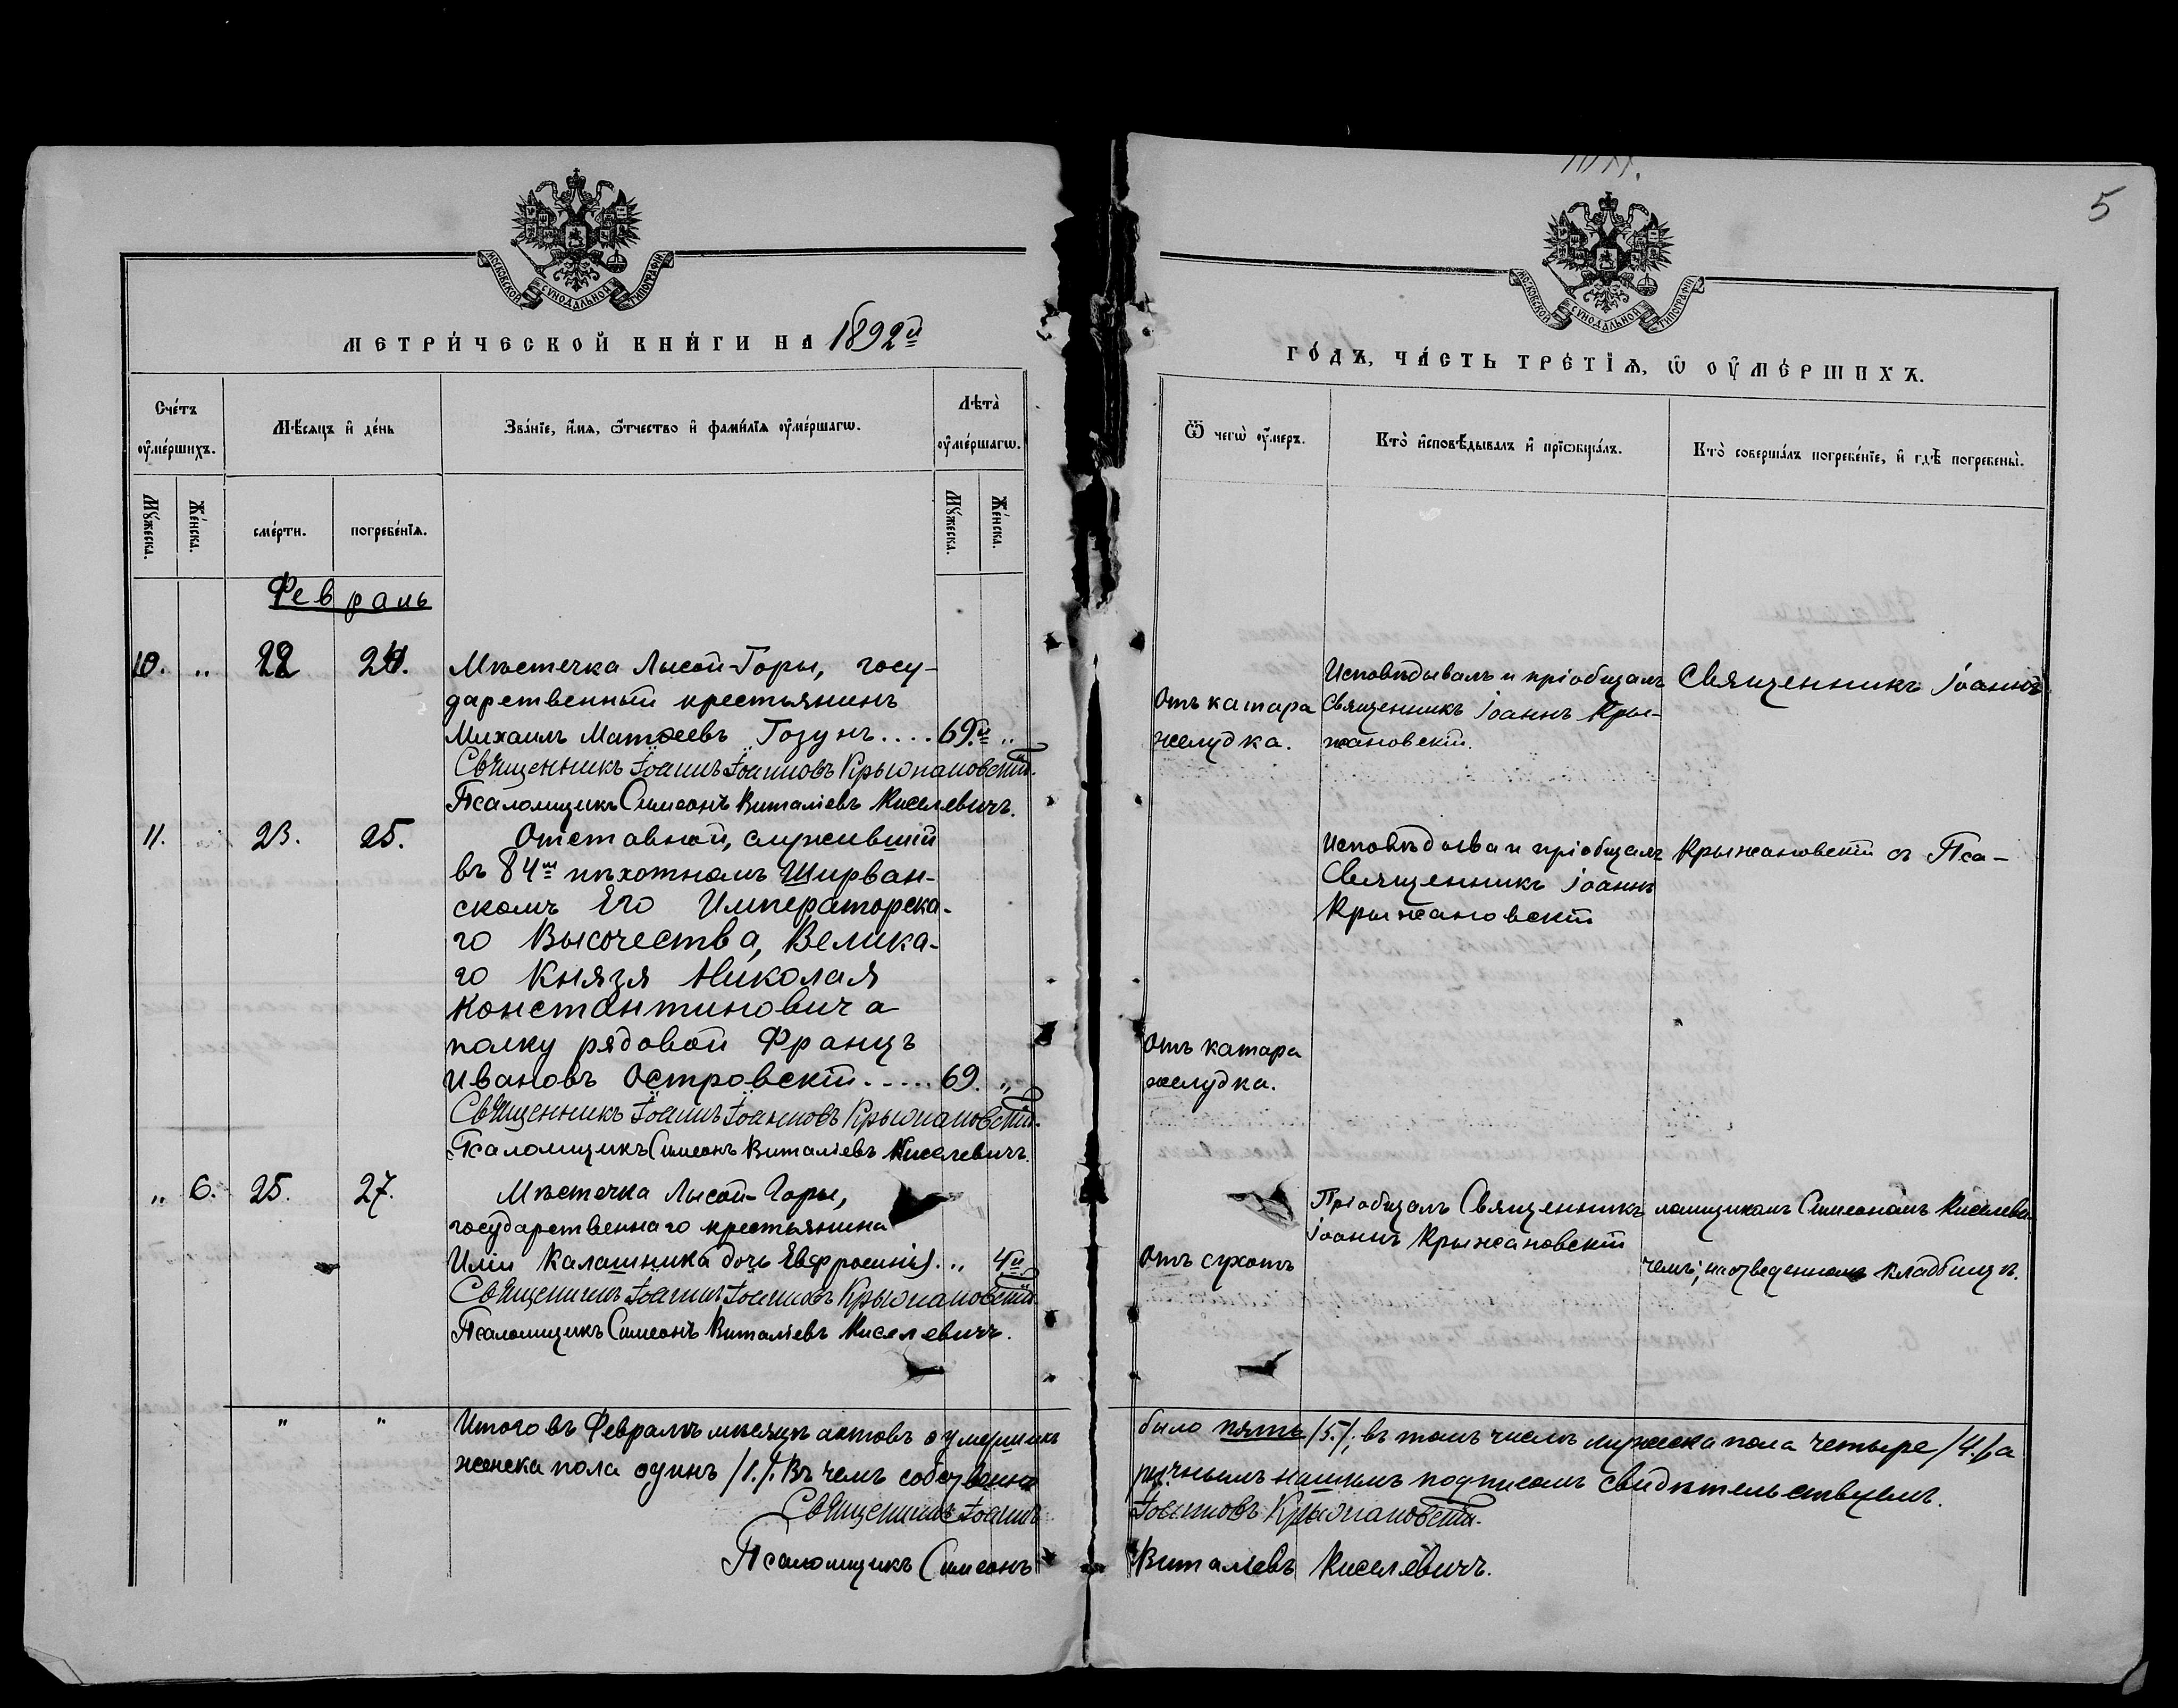 5
МОСКОВСКОЙ СѴНОДАЛЬНОЙ ТИПОГРАФІИ
МОСКОВСКОЙ СѴНОДАЛЬНОЙ ТИПОГРАФІИ
МЕТРИ́ЧЕСКОЙ КНИ́ГИ НА 1892й
ГО́ДЪ, ЧА́СТЬ ТРЕ́ТІѦ, Ѡ ОУ҆МЕ́РШИХЪ.
Сче́тъ оу҆ме́ршихъ.
Мѣ́сяцъ и҆ де́нь
Зва́нїе, и҆́мя, ѻ҆́тчество и҆ фами́лїя оу҆ме́ршагѡ.
Лѣта̀ оу҆ме́ршагѡ.
Ѿ чегѡ̀ оу҆́меръ.
Кто̀ и҆сповѣ́дывалъ и҆ прїѡбща́лъ.
Кто̀ соверша́лъ погребе́нїе, и҆ гдѣ̀ погребены̀.
Му́жеска.
Же́нска.
сме́рти.
погребе́нїя.
Му́жеска.
Же́нска.
Февраль
10. „ 22 24. Мѣстечка Лысой-Горы, госу-
дарственный крестьянинъ
Михаилъ Матѳеевъ Гозунъ.... 69.й „
Священникъ Іоаннъ Іоанновъ Крыжановскій.
Псаломщикъ Симеонъ Виталіевъ Киселевичъ.
Отъ катара
желудка.
Исповѣдывалъ и пріобщалъ
Священникъ Іоаннъ Кры-
жановскій.
Священникъ Іоаннъ
11. 23. 25. Отставной, служившій
въ 84мъ пѣхотномъ Ширван-
скомъ Его Императорска-
го Высочества, Велика-
го Князя Николая
Константиновича
полку рядовой Францъ
Ивановъ Островскій..... 69. „
Священникъ Іоаннъ Іоанновъ Крыжановскій.
Псаломщикъ Симеонъ Виталіевъ Киселевичъ.
Отъ катара
желудка.
Исповѣдыва и пріобщалъ
Священникъ Іоаннъ
Крыжановскій
Крыжановскій съ Пса-
„ 6. 25. 27. Мѣстечка Лысой-Горы,
государственнаго крестьянина
Иліи Калашника дочь Евфросинія.. „ 4й
Священникъ Іоаннъ Іоанновъ Крыжановскій.
Псаломщикъ Симеонъ Виталіевъ Киселевичъ.
Отъ сухотъ
Пріобщалъ Священникъ
Іоаннъ Крыжановскій
ломщикомъ Симеономъ Киселеви-
чемъ; на отведенномъ кладбищѣ.
„ „ Итого въ Февралѣ мѣсяцѣ актовъ о умершихъ было пять /5./; въ томъ числѣ мужеска пола четыре /4./, а
женска пола одинъ /1./. Въ чемъ собственно ручнымъ нашимъ подписомъ свидѣтельствуемъ.
Священникъ Іоаннъ Іоанновъ Крыжановскій.
Псаломщикъ Симеонъ Виталіевъ Киселевичъ.